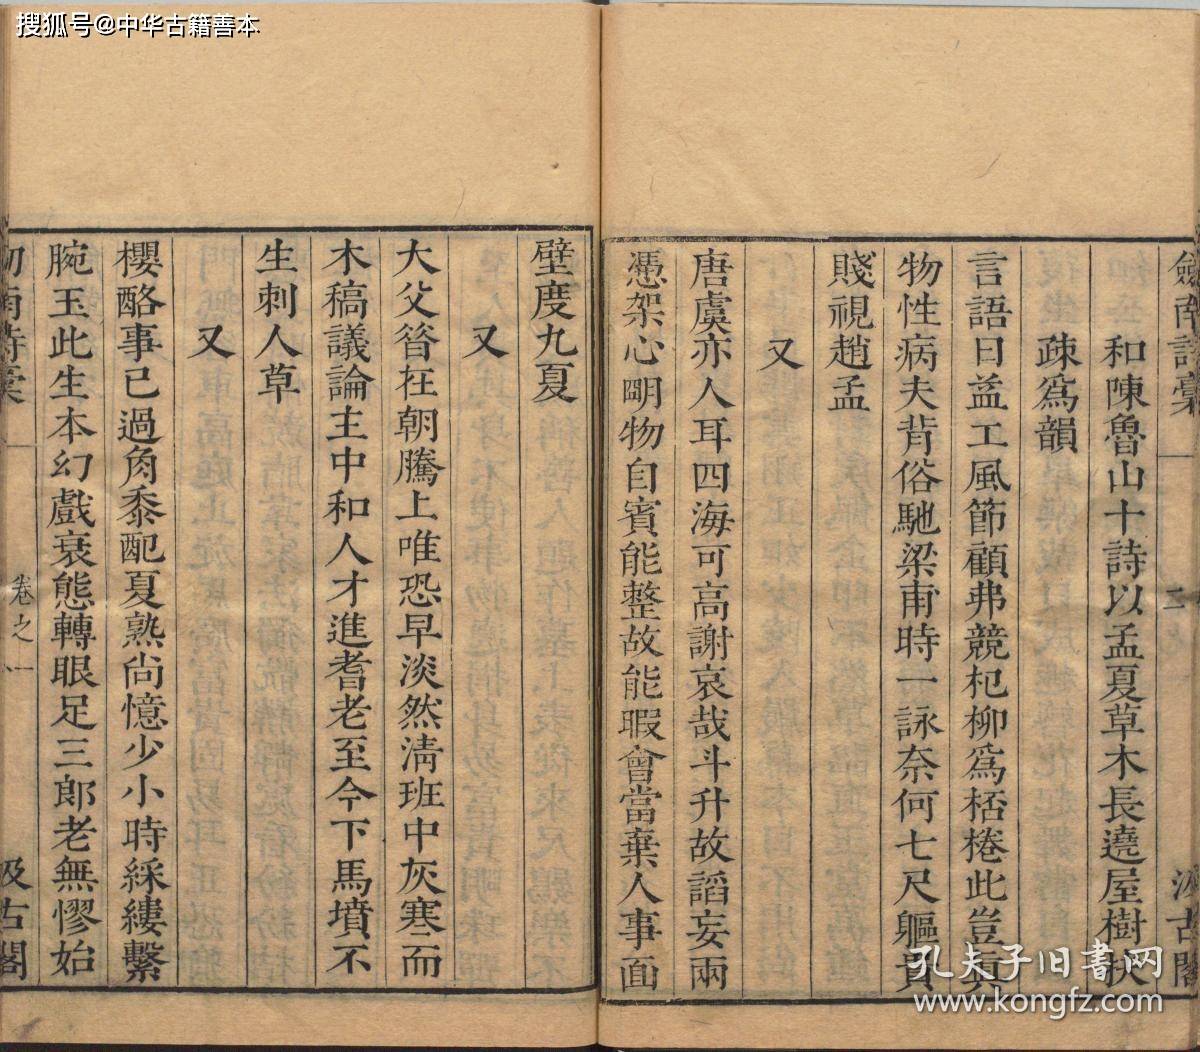 搜狐号@中华古籍善本
劍南詩稾
二
汲古閣
和陳魯山十詩以孟夏草木長遶屋樹扶
疎爲韻
言語日益工風節顧弗競杞柳爲桮棬此豈眞
物性病夫背俗馳梁甫時一詠奈何七尺軀貴
賤視趙孟
又
唐虞亦人耳四海可高謝哀哉斗升故謟妄兩
憑架心明物自賓能整故能暇會當棄人事面
壁度九夏
又
大父昝在朝騰上唯恐早淡然淸班中灰寒而
木稿議論主中和人才進耆老至今下馬墳不
生刺人草
又
櫻酪事已過角黍配夏熟尙憶少小時綵縷繫
腕玉此生本幻戲衰態轉眼足三郞老無憀始
劍南詩稾
卷之一
汲古閣
孔夫子旧书网
www.kongfz.com